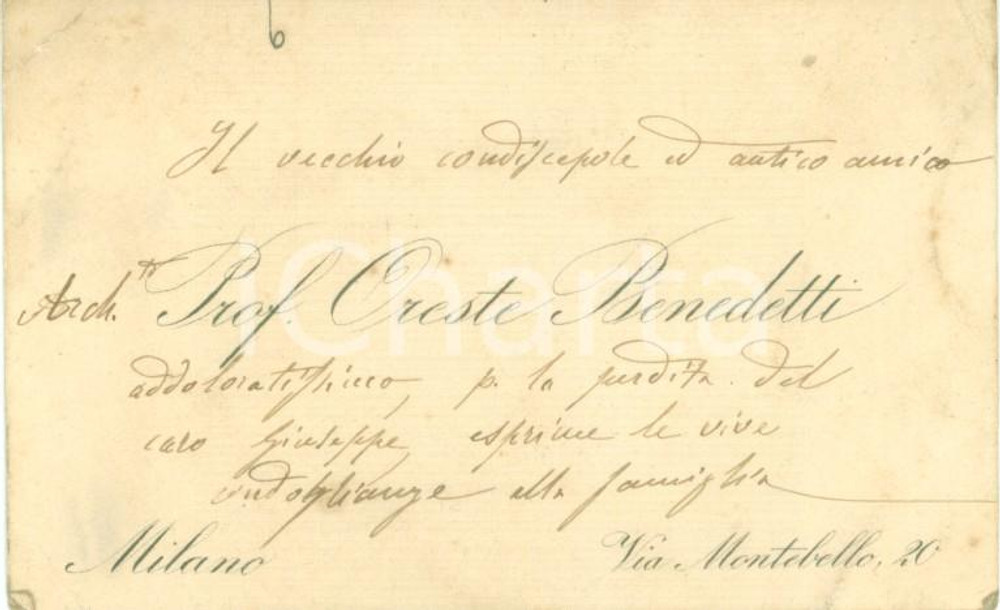 Il vecchio condiscepolo ed antico amico
Arch.to Prof. Oreste Benedetti
addoloratissimo, p. la perdita del
caro Giuseppe, esprime le vive
condoglianze alla famiglia
Milano Via Montebello, 20
iCharta